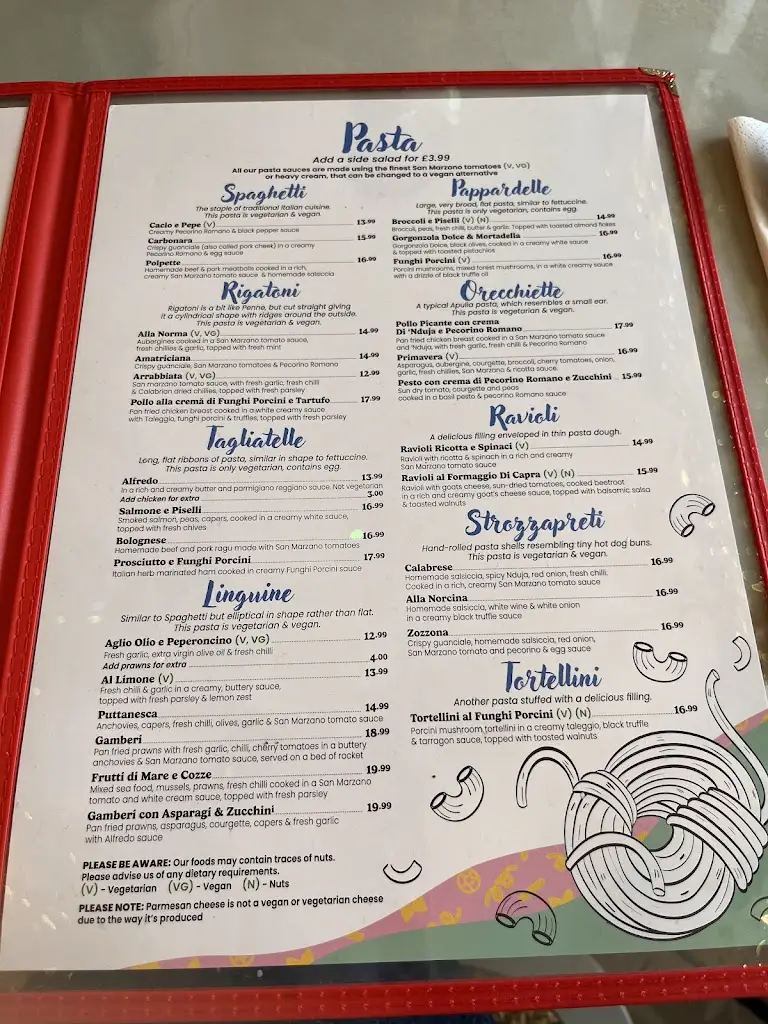 Pasta
Add a side salad for £3.99
All our pasta sauces are made using the finest San Marzano tomatoes (V, VG)
or heavy cream, that can be changed to a vegan alternative
Spaghetti
The staple of traditional Italian cuisine.
This pasta is vegetarian & vegan.
Cacio e Pepe (V) 13.99
Creamy Pecorino Romano & black pepper sauce
Carbonara 15.99
Crispy guanciale (also called pork cheek) in a creamy
Pecorino Romano & egg sauce
Polpette 16.99
Homemade beef & pork meatballs cooked in a rich,
creamy San Marzano tomato sauce & homemade salsiccia
Rigatoni
Rigatoni is a bit like Penne, but cut straight giving
it a cylindrical shape with ridges around the outside.
This pasta is vegetarian & vegan.
Alla Norma (V, VG) 14.99
Aubergines cooked in a San Marzano tomato sauce,
fresh chillies & garlic, topped with fresh mint
Amatriciana 14.99
Crispy guanciale, San Marzano tomatoes & Pecorino Romano
Arrabbiata (V, VG) 12.99
San marzano tomato sauce, with fresh garlic, fresh chilli
& Calabrian dried chillies, topped with fresh parsley
Pollo alla cremà di Funghi Porcini e Tartufo 17.99
Pan fried chicken breast cooked in a white creamy sauce
with Taleggio, funghi porcini & truffles, topped with fresh parsley
Tagliatelle
Long, flat ribbons of pasta, similar in shape to fettuccine.
This pasta is only vegetarian, contains egg.
Alfredo 13.99
In a rich and creamy butter and parmigiano reggiano sauce. Not vegetarian
Add chicken for extra 3.00
Salmone e Piselli 16.99
Smoked salmon, peas, capers, cooked in a creamy white sauce,
topped with fresh chives
Bolognese 16.99
Homemade beef and pork ragu made with San Marzano tomatoes
Prosciutto e Funghi Porcini 17.99
Italian herb marinated ham cooked in creamy Funghi Porcini sauce
Linguine
Similar to Spaghetti but elliptical in shape rather than flat.
This pasta is vegetarian & vegan.
Aglio Olio e Peperoncino (V, VG) 12.99
Fresh garlic, extra virgin olive oil & fresh chilli
Add prawns for extra 4.00
Al Limone (V) 13.99
Fresh chilli & garlic in a creamy, buttery sauce,
topped with fresh parsley & lemon zest
Puttanesca 14.99
Anchovies, capers, fresh chilli, olives, garlic & San Marzano tomato sauce
Gamberi 18.99
Pan fried prawns with fresh garlic, chilli, cherry tomatoes in a buttery
anchovies & San Marzano tomato sauce, served on a bed of rocket
Frutti di Mare e Cozze 19.99
Mixed sea food, mussels, prawns, fresh chilli cooked in a San Marzano
tomato and white cream sauce, topped with fresh parsley
Gamberi con Asparagi & Zucchini 19.99
Pan fried prawns, asparagus, courgette, capers & fresh garlic
with Alfredo sauce
PLEASE BE AWARE: Our foods may contain traces of nuts.
Please advise us of any dietary requirements.
(V) - Vegetarian (VG) - Vegan (N) - Nuts
PLEASE NOTE: Parmesan cheese is not a vegan or vegetarian cheese
due to the way it's produced
Pappardelle
Large, very broad, flat pasta, similar to fettuccine.
This pasta is only vegetarian, contains egg.
Broccoli e Piselli (V) (N) 14.99
Broccoli, peas, fresh chilli, butter & garlic. Topped with toasted almond flakes
Gorgonzola Dolce & Mortadella 16.99
Gorgonzola Dolce, black olives, cooked in a creamy white sauce
& topped with toasted pistachios
Funghi Porcini (V) 16.99
Porcini mushrooms, mixed forest mushrooms, in a white creamy sauce
with a drizzle of black truffle oil
Orecchiette
A typical Apulia pasta, which resembles a small ear.
This pasta is vegetarian & vegan.
Pollo Picante con crema
Di 'Nduja e Pecorino Romano 17.99
Pan fried chicken breast cooked in a San Marzano tomato sauce
and 'Nduja, with fresh garlic, fresh chilli & Pecorino Romano
Primavera (V) 16.99
Asparagus, aubergine, courgette, broccoli, cherry tomatoes, onion,
garlic, fresh chillies, San Marzano & ricotta sauce.
Pesto con crema di Pecorino Romano e Zucchini 15.99
Sun dry tomato, courgette and peas
cooked in a basil pesto & pecorino Romano sauce
Ravioli
A delicious filling enveloped in thin pasta dough.
Ravioli Ricotta e Spinaci (V) 14.99
Ravioli with ricotta & spinach in a rich and creamy
San Marzano tomato sauce
Ravioli al Formaggio Di Capra (V) (N) 15.99
Ravioli with goats cheese, sun-dried tomatoes, cooked beetroot
in a rich and creamy goat's cheese sauce, topped with balsamic salsa
& toasted walnuts
Strozzapreti
Hand-rolled pasta shells resembling tiny hot dog buns.
This pasta is vegetarian & vegan.
Calabrese 16.99
Homemade salsiccia, spicy Nduja, red onion, fresh chilli.
Cooked in a rich, creamy San Marzano tomato sauce
Alla Norcina 16.99
Homemade salsiccia, white wine & white onion
in a creamy black truffle sauce
Zozzona 16.99
Crispy guanciale, homemade salsiccia, red onion,
San Marzano tomato and pecorino & egg sauce
Tortellini
Another pasta stuffed with a delicious filling.
Tortellini al Funghi Porcini (V) (N) 16.99
Porcini mushroom tortellini in a creamy taleggio, black truffle
& tarragon sauce, topped with toasted walnuts